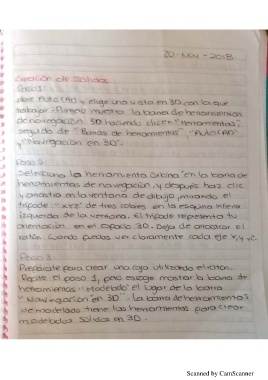 20-Nov-2018
Creación de Sólidos
Paso 1:
Abre AutoCAD y elige una vista en 3D con la que
trabajar. Primero muestra la barra de herramientas
de navegación 3D haciendo clic en "Herramientas",
seguido de "Barras de herramientas", "AutoCAD"
y "Navegación en 3D".
Paso 2:
Selecciona la herramienta órbita en la barra de
herramientas de navegación, y después haz clic
y arrastra en la ventana de dibujo, mirando el
trípode "xyz" de tres colores en la esquina inferior
izquierda de la ventana. El trípode representa tu
orientación en el espacio 3D. Deja de arrastrar el
ratón cuando puedas ver claramente cada eje x, y, z.
Paso 3
Prepárate para crear una caja utilizando el ratón.
Repite el paso 1, pero escoge mostrar la barra de
herramientas "Modelado" el lugar de la barra
"Navegación en 3D". La barra de herramientas
de modelado tiene las herramientas para crear
modelados sólidos en 3D.
Scanned by CamScanner